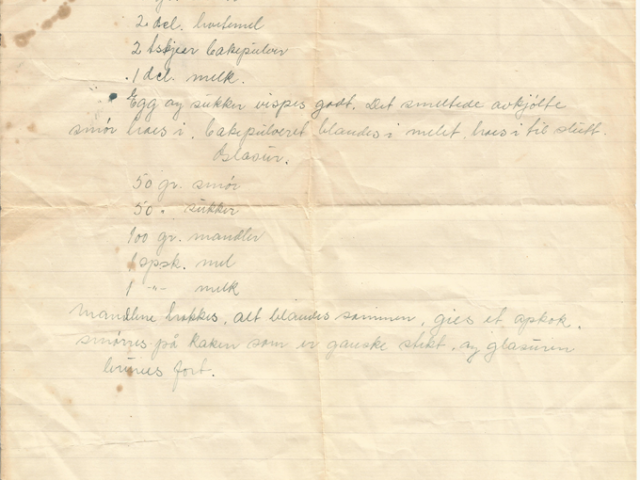 2 del. hvetemel
2 tskjeer bakepulver
1 del. melk.
Egg og sukker vispes godt. Det smeltede avkjølte
smør haes i, bakepulveret blandes i melet, haes i til slutt.
Glasur.
50 gr. smør
50 " sukker
100 gr. mandler
1 spsk. mel
1 -"- melk
Mandlene hakkes, alt blandes sammen, gies et opkok.
smøres på kaken som er ganske stekt, og glasuren
brunes fort.